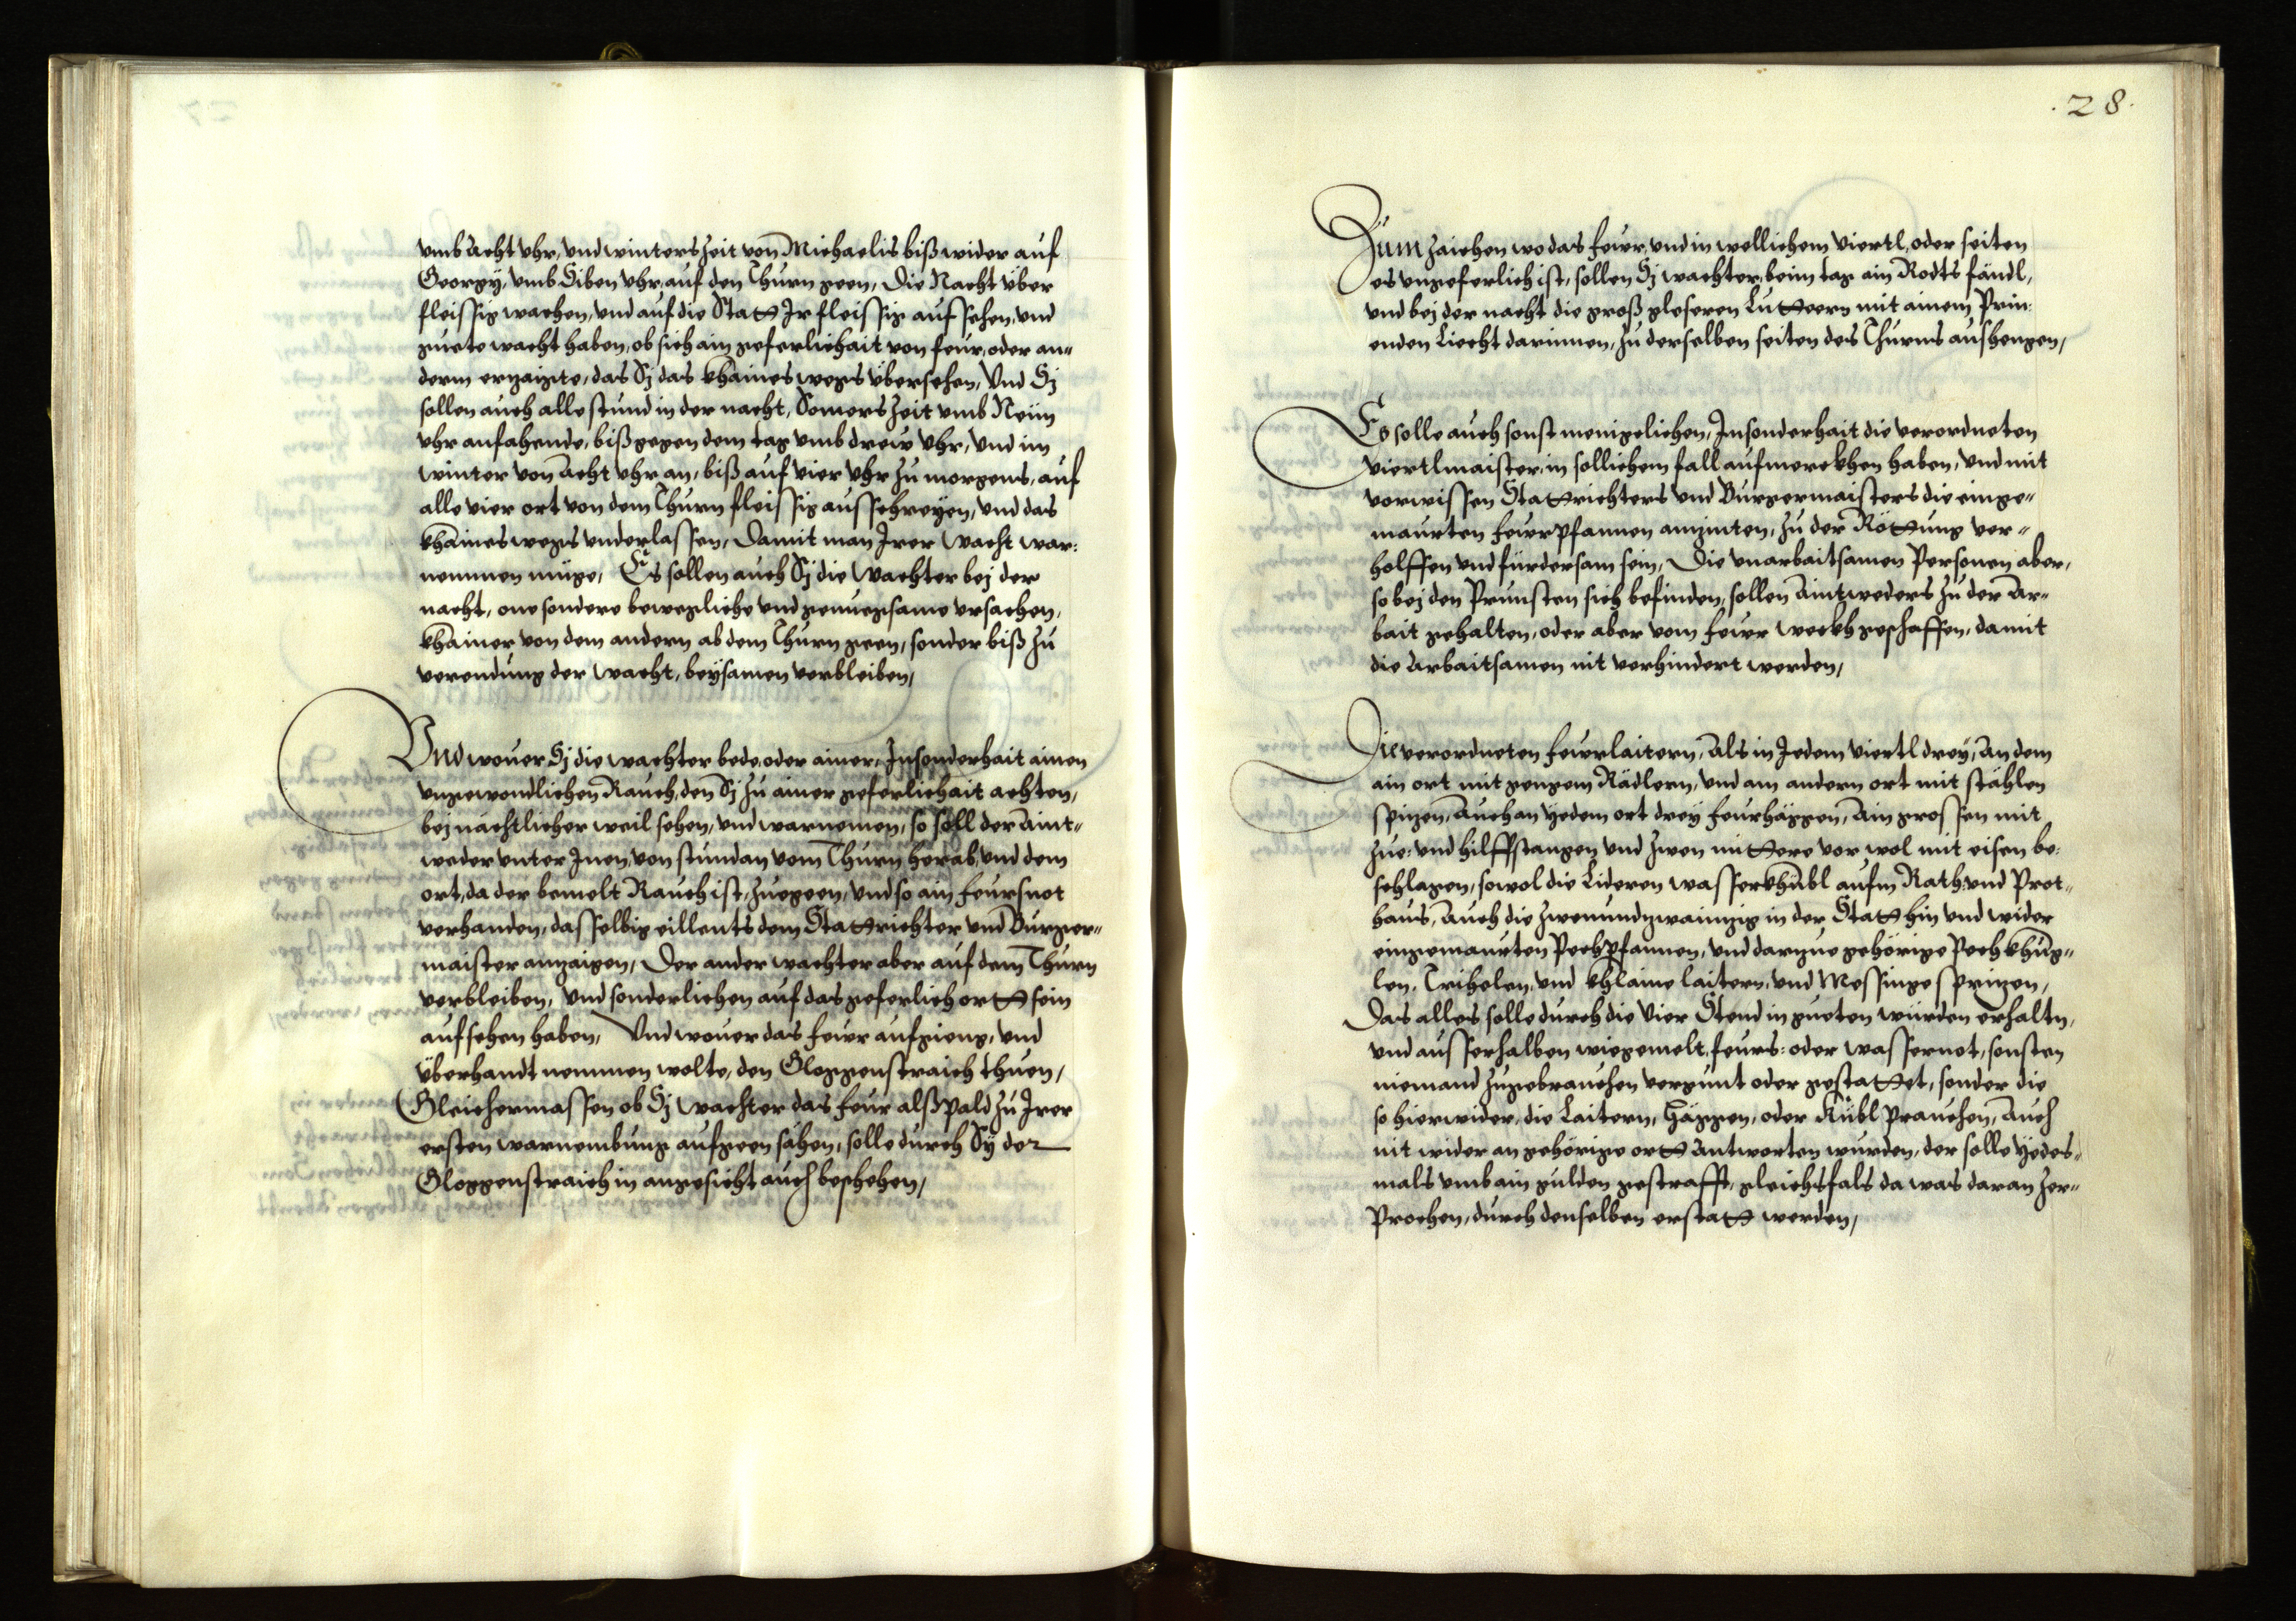 umb Acht Uhr, und winters zeit von Michaelis biß wider auf
Georgÿ, umb Siben Uhr, auf den Thurn geen, Die Nacht über
fleissig wachen, und auf die Stat Ir fleissig aufsehen, und
guete wacht haben, ob sich ain geferlichait von feur, oder an„
derm erzaigte, das Sj das khaines wegs übersehen, Und Sj
sollen auch alle stund in der nacht, Somers zeit umb Neün
Uhr anfahende, biß gegen dem tag umb drew Uhr, und im
winter von Acht Uhr an, biß auf vier Uhr zu morgens, auf
alle vier ort von dem Thurn fleissig ausschreÿen, und das
khaines wegs underlassen, Damit man Irer Wacht war:
nemmen müge, Es sollen auch Sj die Wachter bej der
nacht, one sondere bewegliche und genuegsame ursachen,
khainer von dem andern ab dem Thurn geen, sonder biß zu
verendung der Wacht, beÿsamen verbleiben,
Und wouer Sj die wachter bede, oder ainer, Insonderhait ainen
ungewondlichen Rauch, den Sj zu ainer geferlichait achten,
bej nächtlicher weil sehen, und warnemen, so soll der Aint„
weder unter Inen, von stundan vom Thurn herab, und dem
ort, da der bemelt Rauch ist, zuegeen, und so ain feursnot
verhanden, dasselbig eillents dem Statrichter und Burger„
maister anzaigen, Der ander wachter aber auf dem Thurn
verbleiben, und sonderlichen auf das geferlich ort sein
aufsehen haben, Und wouer das feur aufgieng, und
überhandt nemmen wolte, den Gloggenstraich thuen,
Gleichermassen ob Sj Wachter das feur alßpald zu Irer
ersten warnembung aufgeen sähen, solle durch Sÿ der
Gloggenstraich in angesicht auch beschehen,
.28.
Zum zaichen wo das feur, und in wellichem Viertl, oder seiten
es ungeferlich ist, sollen Sj wachter, beim tag ain Rodts fändl,
und bej der nacht die groß gleseren Lutteern mit ainem Prin:
enden Liecht darinnen, zu derselben seiten des Thurns aushengen,
Es solle auch sonst menigelichen, Insonderhait die verordneten
Viertlmaister, in sollichem fall aufmerckhen haben, und mit
vorwissen Statrichters und Burgermaisters die einge„
maurten feurpfannen anzinten, zu der Röttung ver„
holffen und fürdersam sein, Die unarbaitsamen Personen aber,
so bej den Prunsten sich befinden, sollen Aintweders zu der Ar„
bait gehalten, oder aber vom feur weckh geschaffen, damit
die Arbaitsamen nit verhindert werden,
Die verordneten feurlaitern, Als in Jedem Viertl dreÿ, An dem
ain ort mit gengem Rädlern, und am andern ort mit stählen
spizen, Auch an ÿedem ort dreÿ feurhäggen, Ain grossen mit
zue: und hilffstangen und zwen mittere vor wol mit eisen be:
schlagen, sowol die Lideren wasserkhübl aufm Rath: und Prot„
haus, Auch die zwenundzwainzig in der Stat hin und wider
eingemaurten Pechpfannen, und darzue gehörige Pech khug„
len, Trihelen, und khlaine laitern, und Messinge sprizen,
Das alles solle durch die Vier Stend in gueten würden erhaltn,
und ausserhalben wiegemelt, feurs: oder wassernot, sonsten
niemand zugebrauchen vergunt oder gestattet, sonder die
so hierwider, die Laitern, Häggen, oder Kübl prauchen, Auch
nit wider an gehörige ort Antworten wurden, der solle ÿedes„
mals umb ain gulden gestrafft, gleichsfals da was daran zer„
Prochen, durch denselben erstat werden,